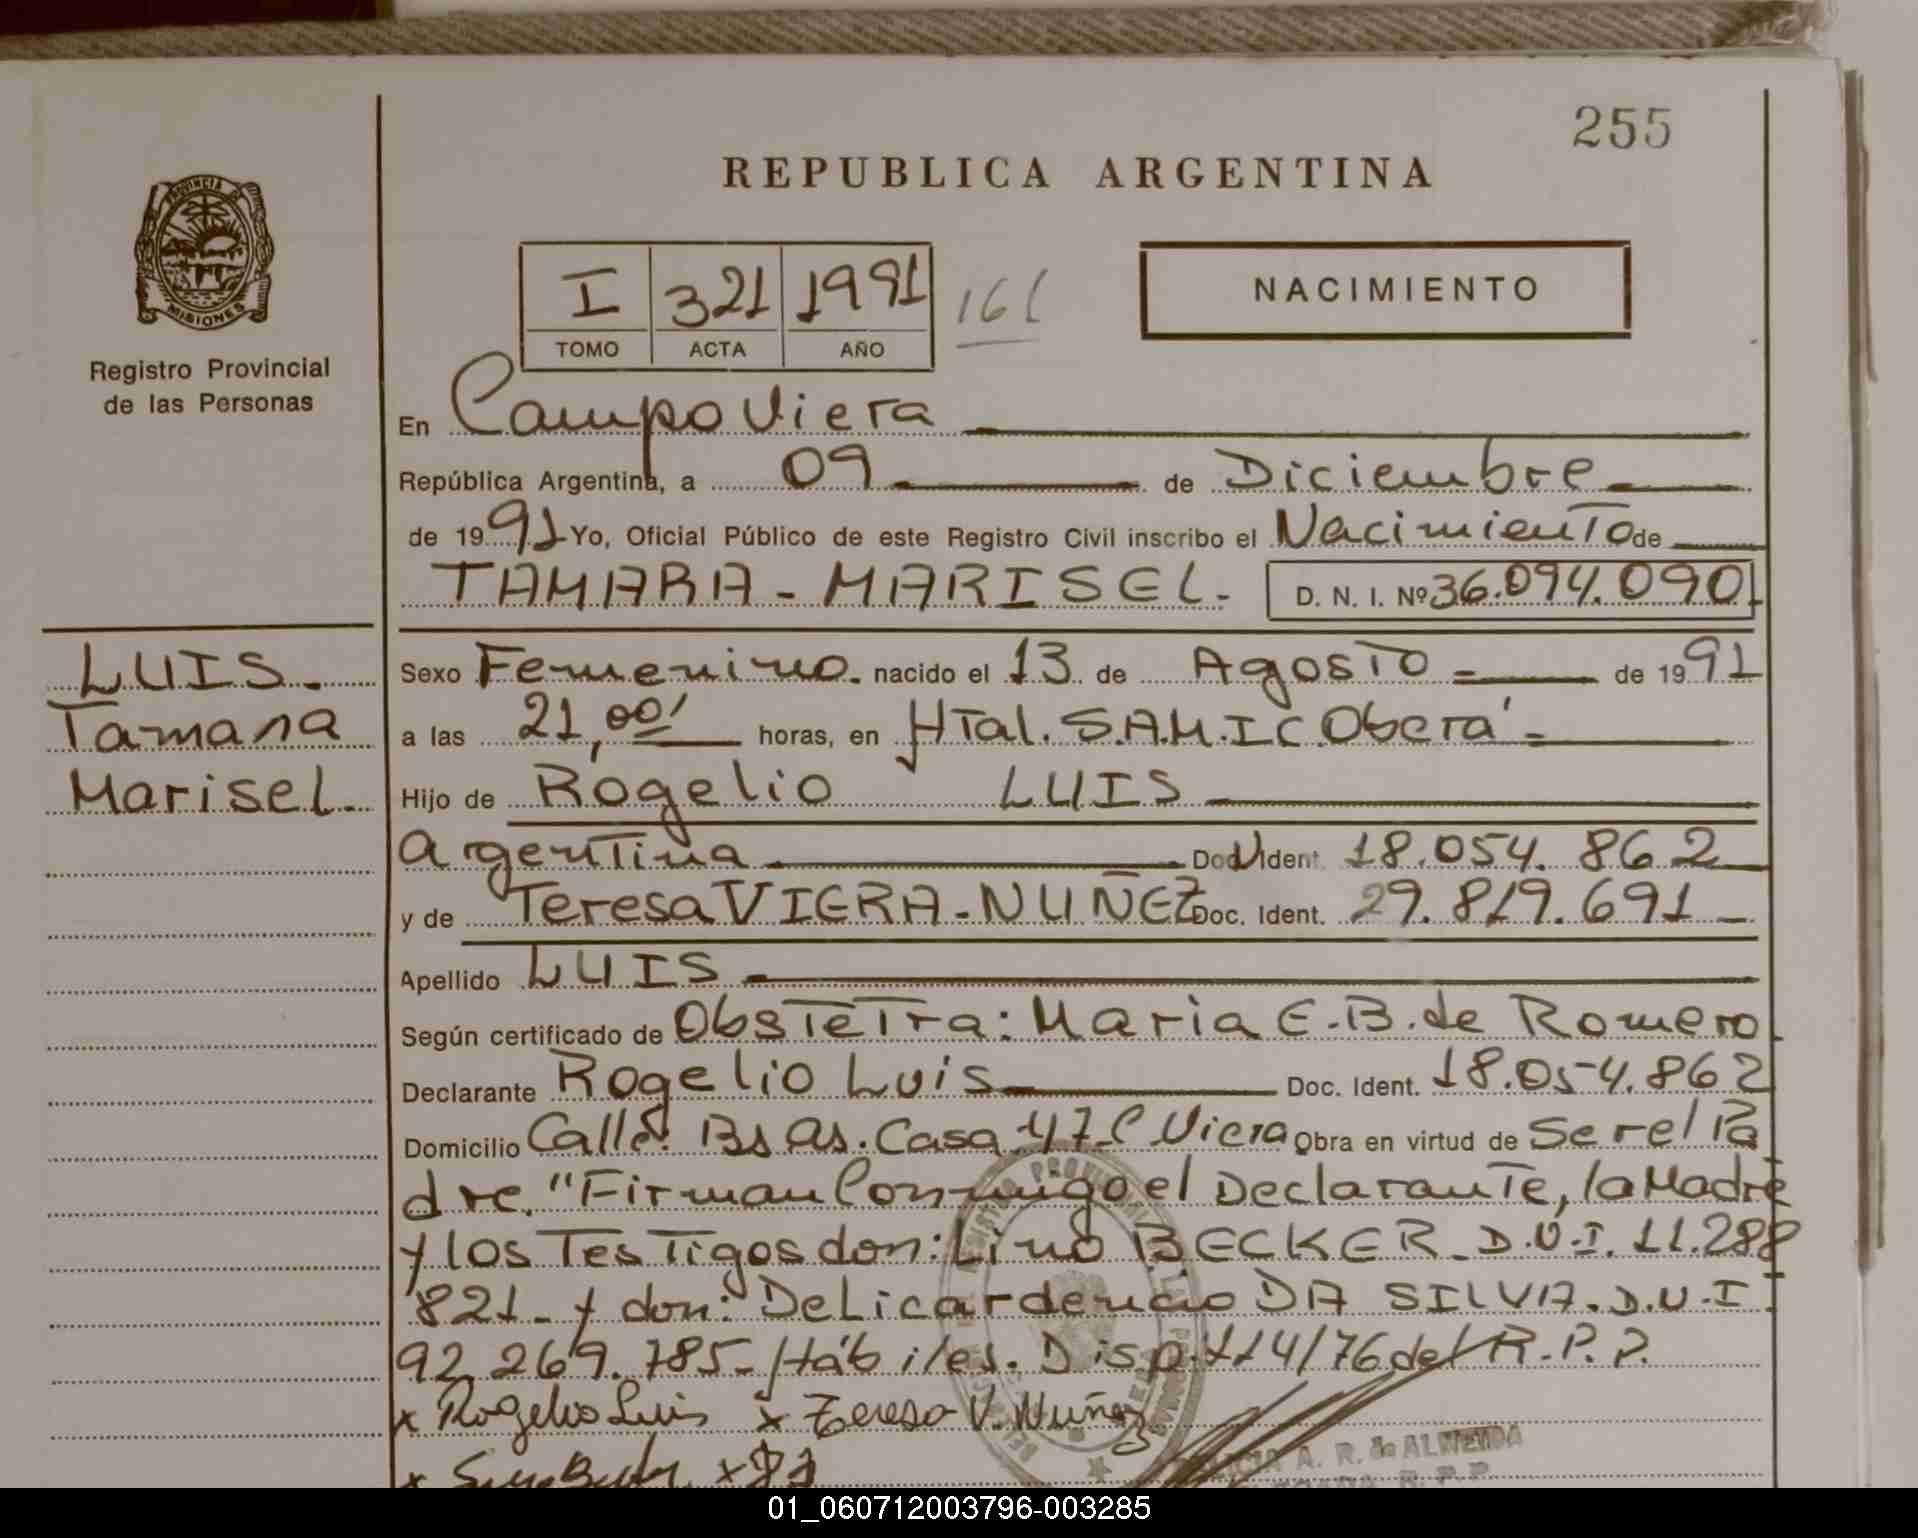 255
REPUBLICA ARGENTINA
PROVINCIA DE
MISIONES
Registro Provincial
de las Personas
I 321 1991 161
TOMO ACTA AÑO
NACIMIENTO
En Campo Viera
República Argentina, a 09 de Diciembre
de 1991 Yo, Oficial Público de este Registro Civil inscribo el Nacimiento de
TAMARA - MARISEL. D. N. I. Nº 36.094.090
LUIS.
Tamara
Marisel.
Sexo Femenino. nacido el 13 de Agosto = de 1991
a las 21,00' horas, en Htal. S.A.M.I.C. Oberá =
Hijo de Rogelio LUIS
Argentina Doc. Ident. 18.054.862
y de Teresa VIERA - NUÑEZ Doc. Ident. 29.819.691
Apellido LUIS
Según certificado de Obstetra: Maria E.B. de Romero.
Declarante Rogelio Luis Doc. Ident. 18.054.862
Domicilio Calle: Bs As. Casa 47 C Viera Obra en virtud de Ser el Pa
dre. "Firman Conmigo el Declarante, la Madre
y los Testigos don: Lino BECKER. D.N.I. 11.288
821 - y don: Delicardencio DA SILVA. D.N.I.
92.269.785 - Hábiles. Disp. 114/76 del R.P.P.
x Rogelio Luis x Teresa V. Nuñez
A. R. de ALMEIDA
R. P. P.
01_060712003796-003285